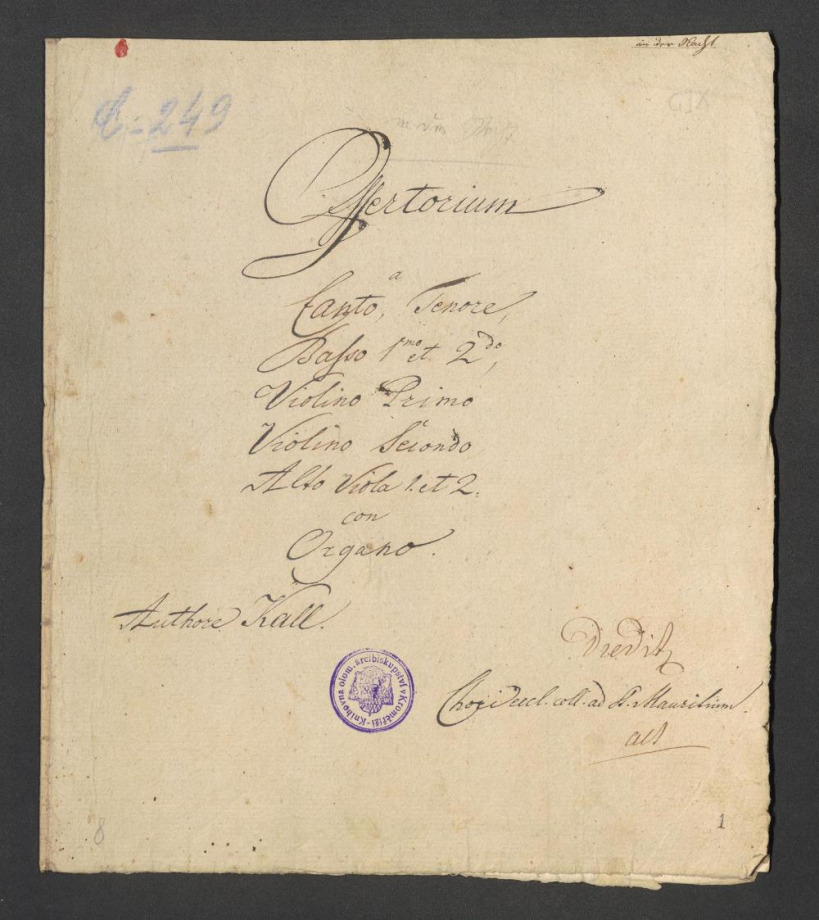 in der Nacht
A-249
Offertorium
a
Canto, Tenore,
Basso 1mo et 2do,
Violino Primo
Violino Secondo
Alto Viola 1. et 2.
con
Organo.
Authore Kall.
Chori eccl. coll. ad S. Mauritium.
Knihovna olom. arcibiskupství v Kroměříži
8
1